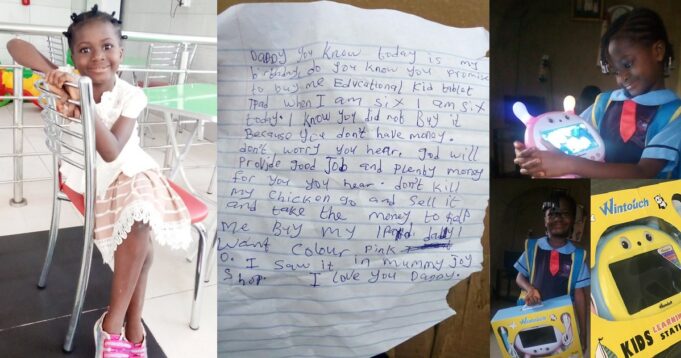 DADDY you know today is my
birthday do you know you promise
to buy me Educational kid tablet
IPad when I am six I am six
today. I know you did not Buy it
Because you don't have money.
don't worry you hear. god will
Provide good job and plenty money
for you you hear. don't kill
my chicken go and sell it
and take the money to
Me Buy my IPad daddy I
Want Colour pink
O. I saw it in mummy Joy
Shop I love you Daddy.
Wintouch
Wintouch
KIDS LEARNING
STATI